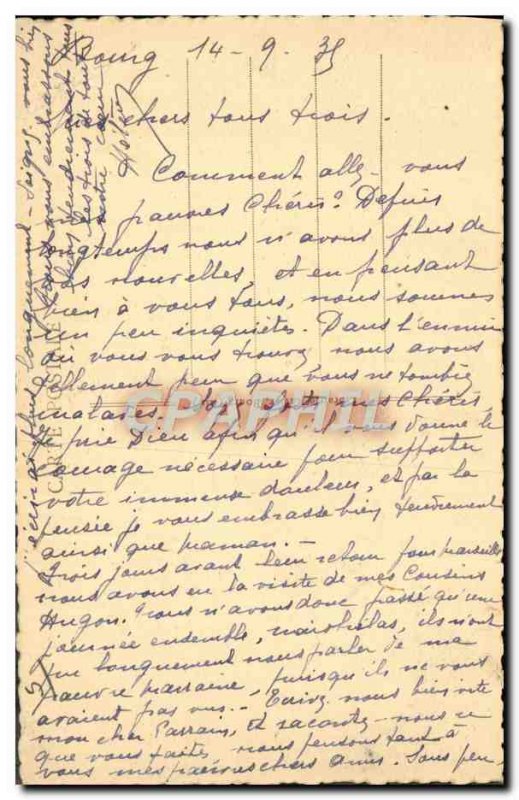 Bourg 14-9. 35
chers tous trois.
Comment allez-vous
pauvres Chéris? Depuis
longtemps nous n'avons plus de
vos nouvelles et en pensant
bien à vous tous, nous sommes
un peu inquiètes. Dans l'ennui
où vous vous trouvez nous avons
tellement peur que vous ne tombiez
malades. Chéris
je prie Dieu afin qu'il vous donne le
courage nécessaire pour supporter
votre immense douleur, et par la
pensée je vous embrasse bien tendrement
ainsi que maman. -
Trois jours avant leur retour pour Marseille
nous avons eu la visite de mes Cousins
Hugon. Nous n'avons donc passé qu'une
journée ensemble, mais hélas, ils n'ont
pu longuement nous parler de ma
pauvre marraine, puisqu'ils ne vous
avaient pas vus. - Ecrivez nous bien vite
mon cher Parrain, et racontez-nous ce
que vous faites nous pensons tant à
vous mes pauvres chers amis. Sous peu,
j'écrirai plus longuement - Soignez vous bien
vous embrassons
tendrement tous
les trois de tout
notre cœur
CARTE POSTALE
CPAPHIL